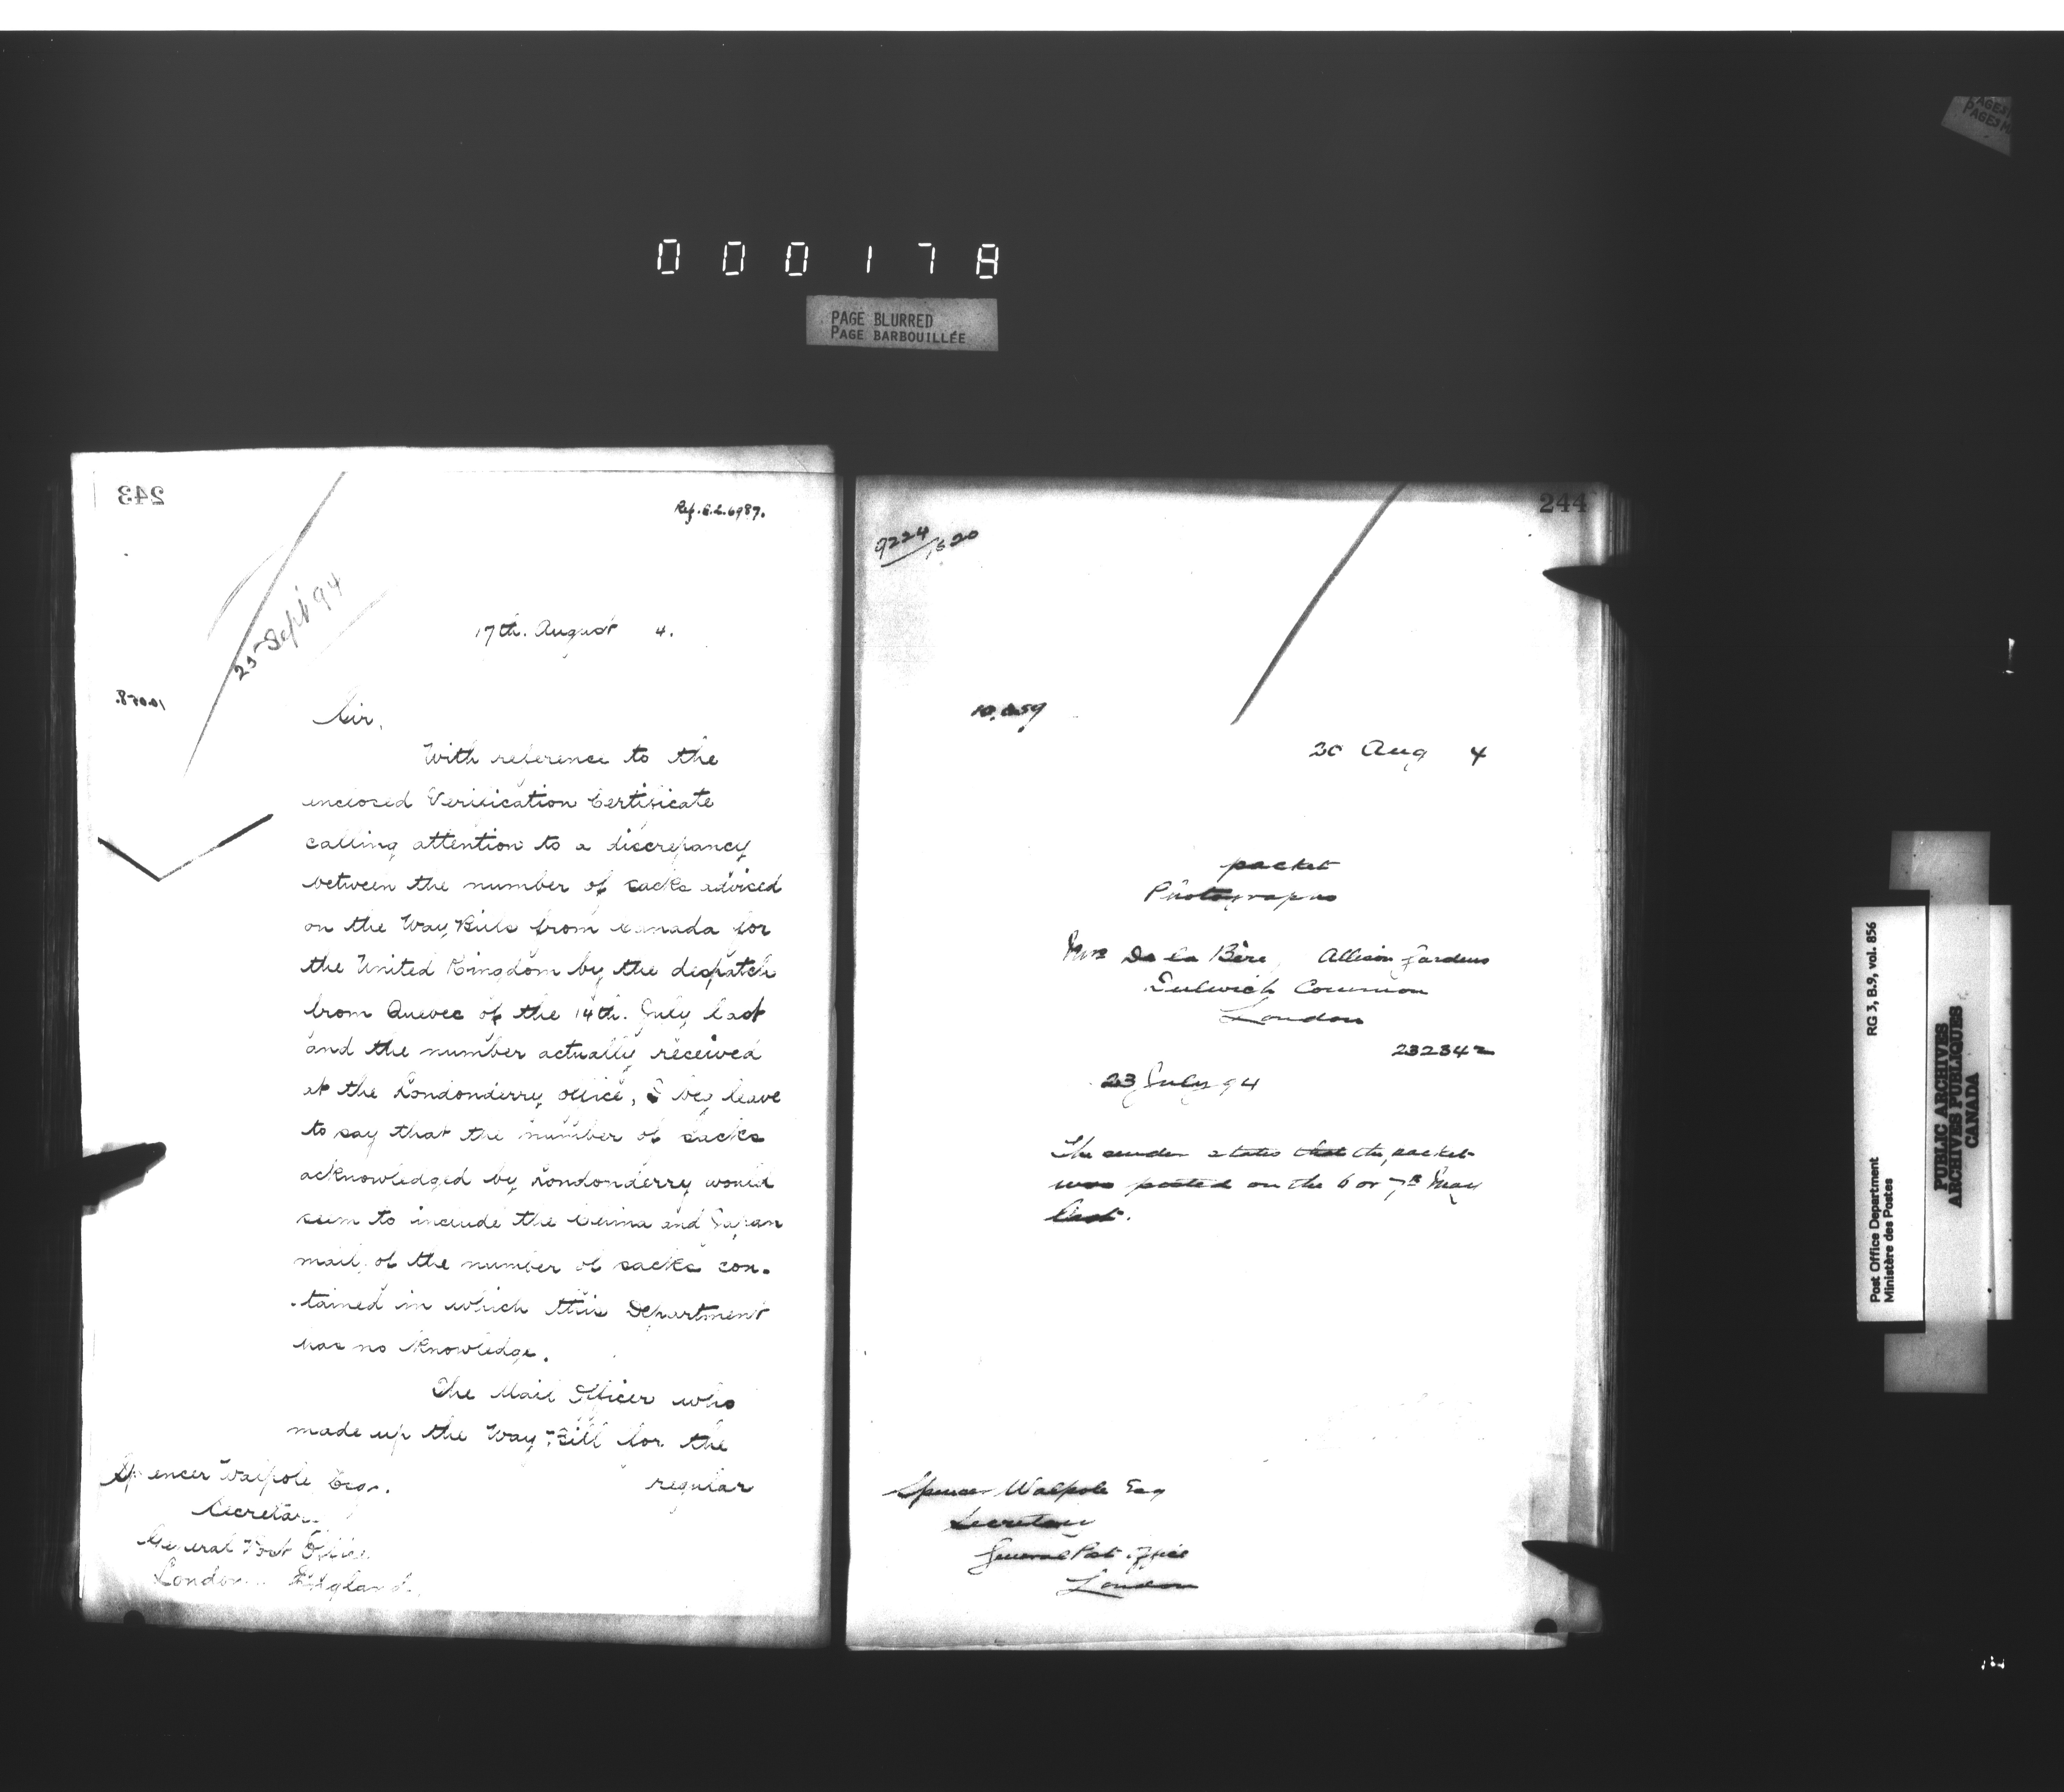 000178
PAGE BLURRED
PAGE BARBOUILLÉE
243
Ref. E.L. 6987.
25 Sept 94
17th. August 4.
10.058.
Sir,
With reference to the
enclosed Verification Certificate
calling attention to a discrepancy
between the number of sacks advised
on the Way Bills from Canada for
the United Kingdom by the despatch
from Quebec of the 14th. July last
and the number actually received
at the Londonderry office, I beg leave
to say that the number of sacks
acknowledged by Londonderry would
seem to include the China and Japan
mail, of the number of sacks con-
-tained in which this Department
has no knowledge.
The Mail Officer who
made up the Way Bill for the
regular
Spencer Walpole Esqr.
Secretary
General Post Office
London England.
244
9224/1520
10,059
20 Aug 4
packet
Photographs
Mrs De la Bère, Allison Gardens
Dulwich Common
London
232342
23 July 94
The sender states that the packet
was posted on the 6 or 7th May
last.
Spencer Walpole Esq
Secretary
General Post Office
London
RG 3, B.9, vol. 856
Post Office Department
Ministère des Postes
PUBLIC ARCHIVES
ARCHIVES PUBLIQUES
CANADA